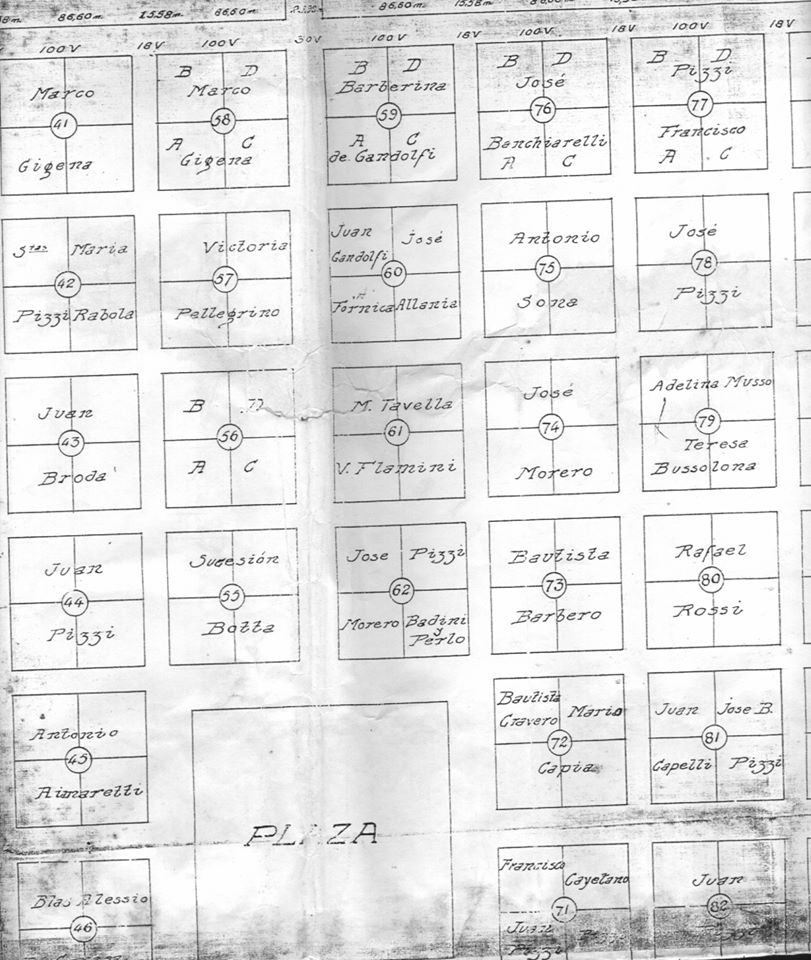 86,60m. 15,58m. 86,60m. 86,60m. 15,58m.
100V 18V 100V 30V 100V 18V 100V 18V 100V 18V
Marco
41
Gigena
B D
Marco
58
A C
Gigena
B D
Barberina
59
A C
de Gandolfi
B D
José
76
Banchiarelli
A C
B D
Pizzi
77
Francisco
A C
Stas Maria
42
Pizzi Rabola
Victoria
57
Pellegrino
Juan José
Gandolfi
60
Fornica Allania
Antonio
75
Sona
José
78
Pizzi
Juan
43
Broda
B D
56
A C
M. Tavella
61
V. Flamini
José
74
Morero
Adelina Musso
79
Teresa
Bussolona
Juan
44
Pizzi
Sucesión
55
Botta
Jose Pizzi
62
Morero Badini
y
Perlo
Bautista
73
Barbero
Rafael
80
Rossi
Antonio
45
Aimaretti
PLAZA
Bautista Mario
Cravero
72
Capia
Juan Jose B.
81
Capelli Pizzi
Blas Alessio
46
Francisco
Cayetano
71
Juan
Pizzi
Juan
82